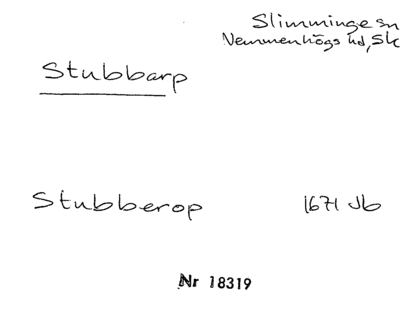 Slimminge sn
Vemmenhögs hd, Sk
Stubbarp
Stubberop 1671 Jb
Nr 18319